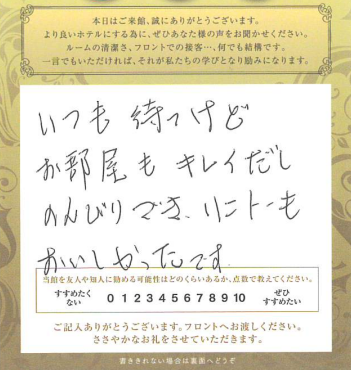 本日はご来館、誠にありがとうございます。
より良いホテルにする為に、ぜひあなた様の声をお聞かせください。
ルームの清潔さ、フロントでの接客…、何でも結構です。
一言でもいただければ、それが私たちの学びとなり励みになります。
いつも待つけど
お部屋もキレイだし
のんびりでき、リゾートーも
おいしかったです。
当館を友人や知人に勧める可能性はどのくらいあるか、点数で教えてください。
すすめたくない 0 1 2 3 4 5 6 7 8 9 10 ぜひすすめたい
ご記入ありがとうございます。フロントへお渡しください。
ささやかなお礼をさせていただきます。
書ききれない場合は裏面へどうぞ